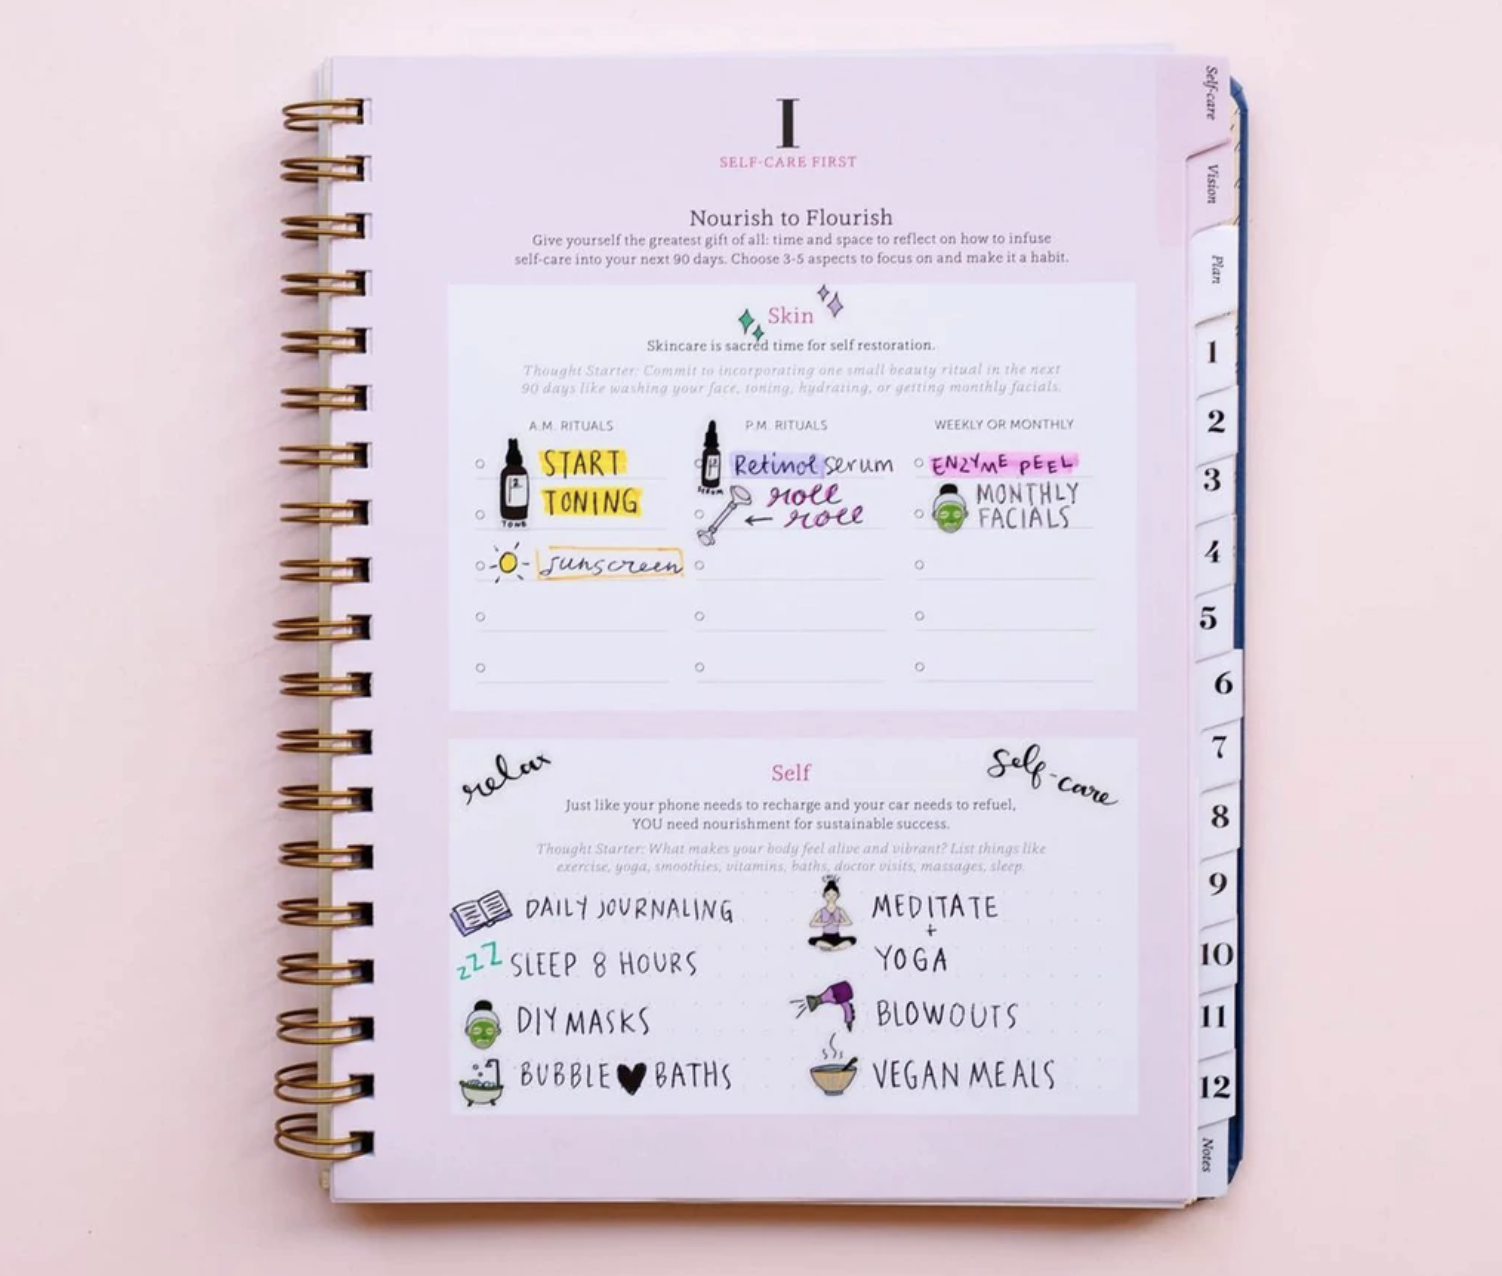 I
SELF-CARE FIRST
Nourish to Flourish
Give yourself the greatest gift of all: time and space to reflect on how to infuse
self-care into your next 90 days. Choose 3-5 aspects to focus on and make it a habit.
Skin
Skincare is sacred time for self restoration.
Thought Starter: Commit to incorporating one small beauty ritual in the next
90 days like washing your face, toning, hydrating, or getting monthly facials.
A.M. RITUALS
START
TONING
TONE
sunscreen
P.M. RITUALS
Retinol serum
SERUM
roll
← roll
WEEKLY OR MONTHLY
ENZYME PEEL
MONTHLY
FACIALS
relax
Self
self-care
Just like your phone needs to recharge and your car needs to refuel,
YOU need nourishment for sustainable success.
Thought Starter: What makes your body feel alive and vibrant? List things like
exercise, yoga, smoothies, vitamins, baths, doctor visits, massages, sleep.
DAILY JOURNALING
zzz SLEEP 8 HOURS
DIY MASKS
BUBBLE ♥ BATHS
MEDITATE
+
YOGA
BLOWOUTS
VEGAN MEALS
Self-care
Vision
Plan
1
2
3
4
5
6
7
8
9
10
11
12
Notes